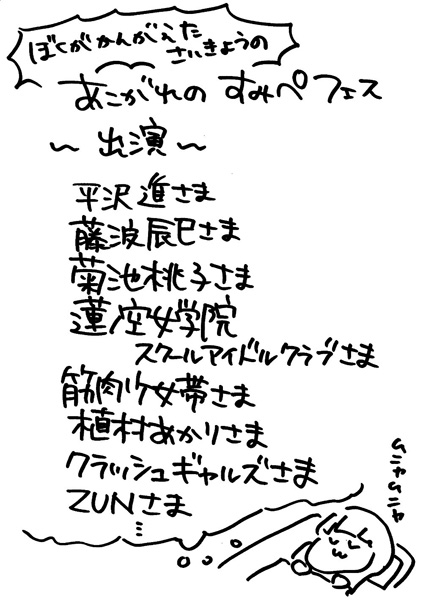 ぼくがかんがえた
さいきょうの
あこがれの すみぺ フェス
~ 出演 ~
平沢 進さま
藤波辰巳さま
菊池桃子さま
蓮ノ空女学院
スクールアイドルクラブさま
筋肉少女帯さま
植村あかりさま
クラッシュギャルズさま
ZUNさま
…
ムニャムニャ